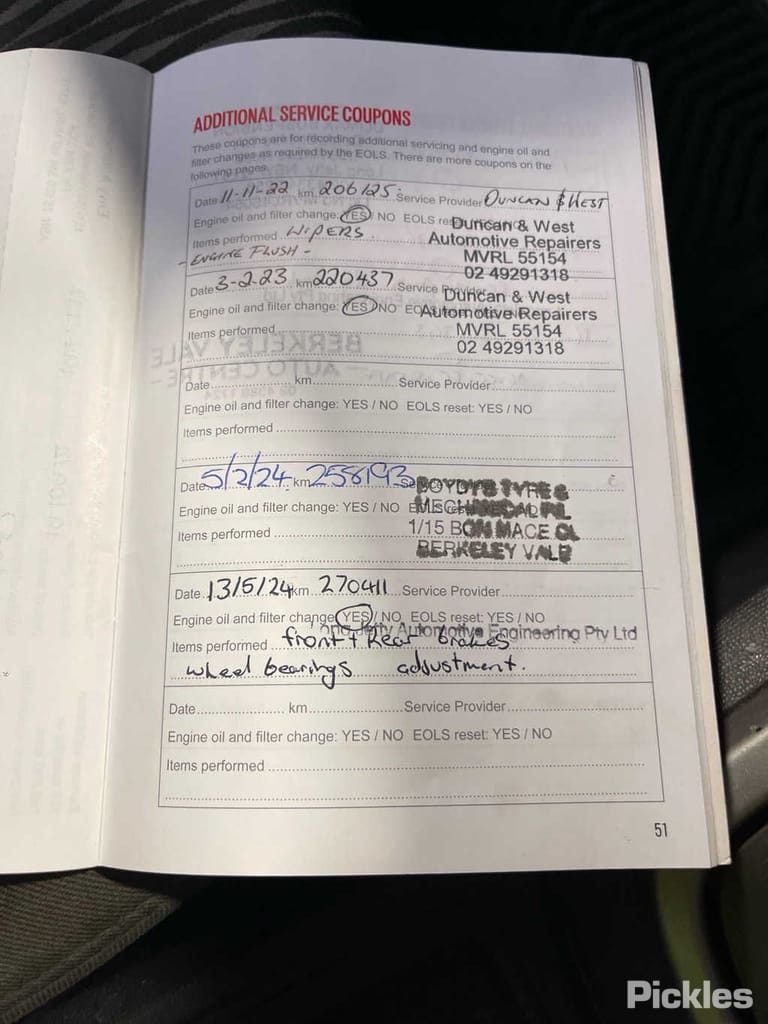 ADDITIONAL SERVICE COUPONS
These coupons are for recording additional servicing and engine oil and
filter changes as required by the EOLS. There are more coupons on the
following pages.
Date 11-11-22 km 206125 Service Provider DUNCAN & WEST
Engine oil and filter change: YES / NO EOLS
Duncan & West
Items performed WIPERS
Automotive Repairers
- ENGINE FLUSH -
MVRL 55154
02 49291318
Date 3-2-23 km 220437 Service Provider
Duncan & West
Engine oil and filter change: YES / NO
Automotive Repairers
Items performed
MVRL 55154
02 49291318
Date km Service Provider
Engine oil and filter change: YES / NO EOLS reset: YES / NO
Items performed
Date 5/2/24 km 258193
BOYDYS TYRE &
Engine oil and filter change: YES / NO
MECHANICAL P/L
Items performed
1/15 BON MACE CL
BERKELEY VALE
Date 13/5/24 km 270411 Service Provider
Engine oil and filter change: YES / NO EOLS reset: YES / NO
Jetty Automotive Engineering Pty Ltd
Items performed front + Rear brakes
wheel bearings adjustment.
Date km Service Provider
Engine oil and filter change: YES / NO EOLS reset: YES / NO
Items performed
51
Pickles